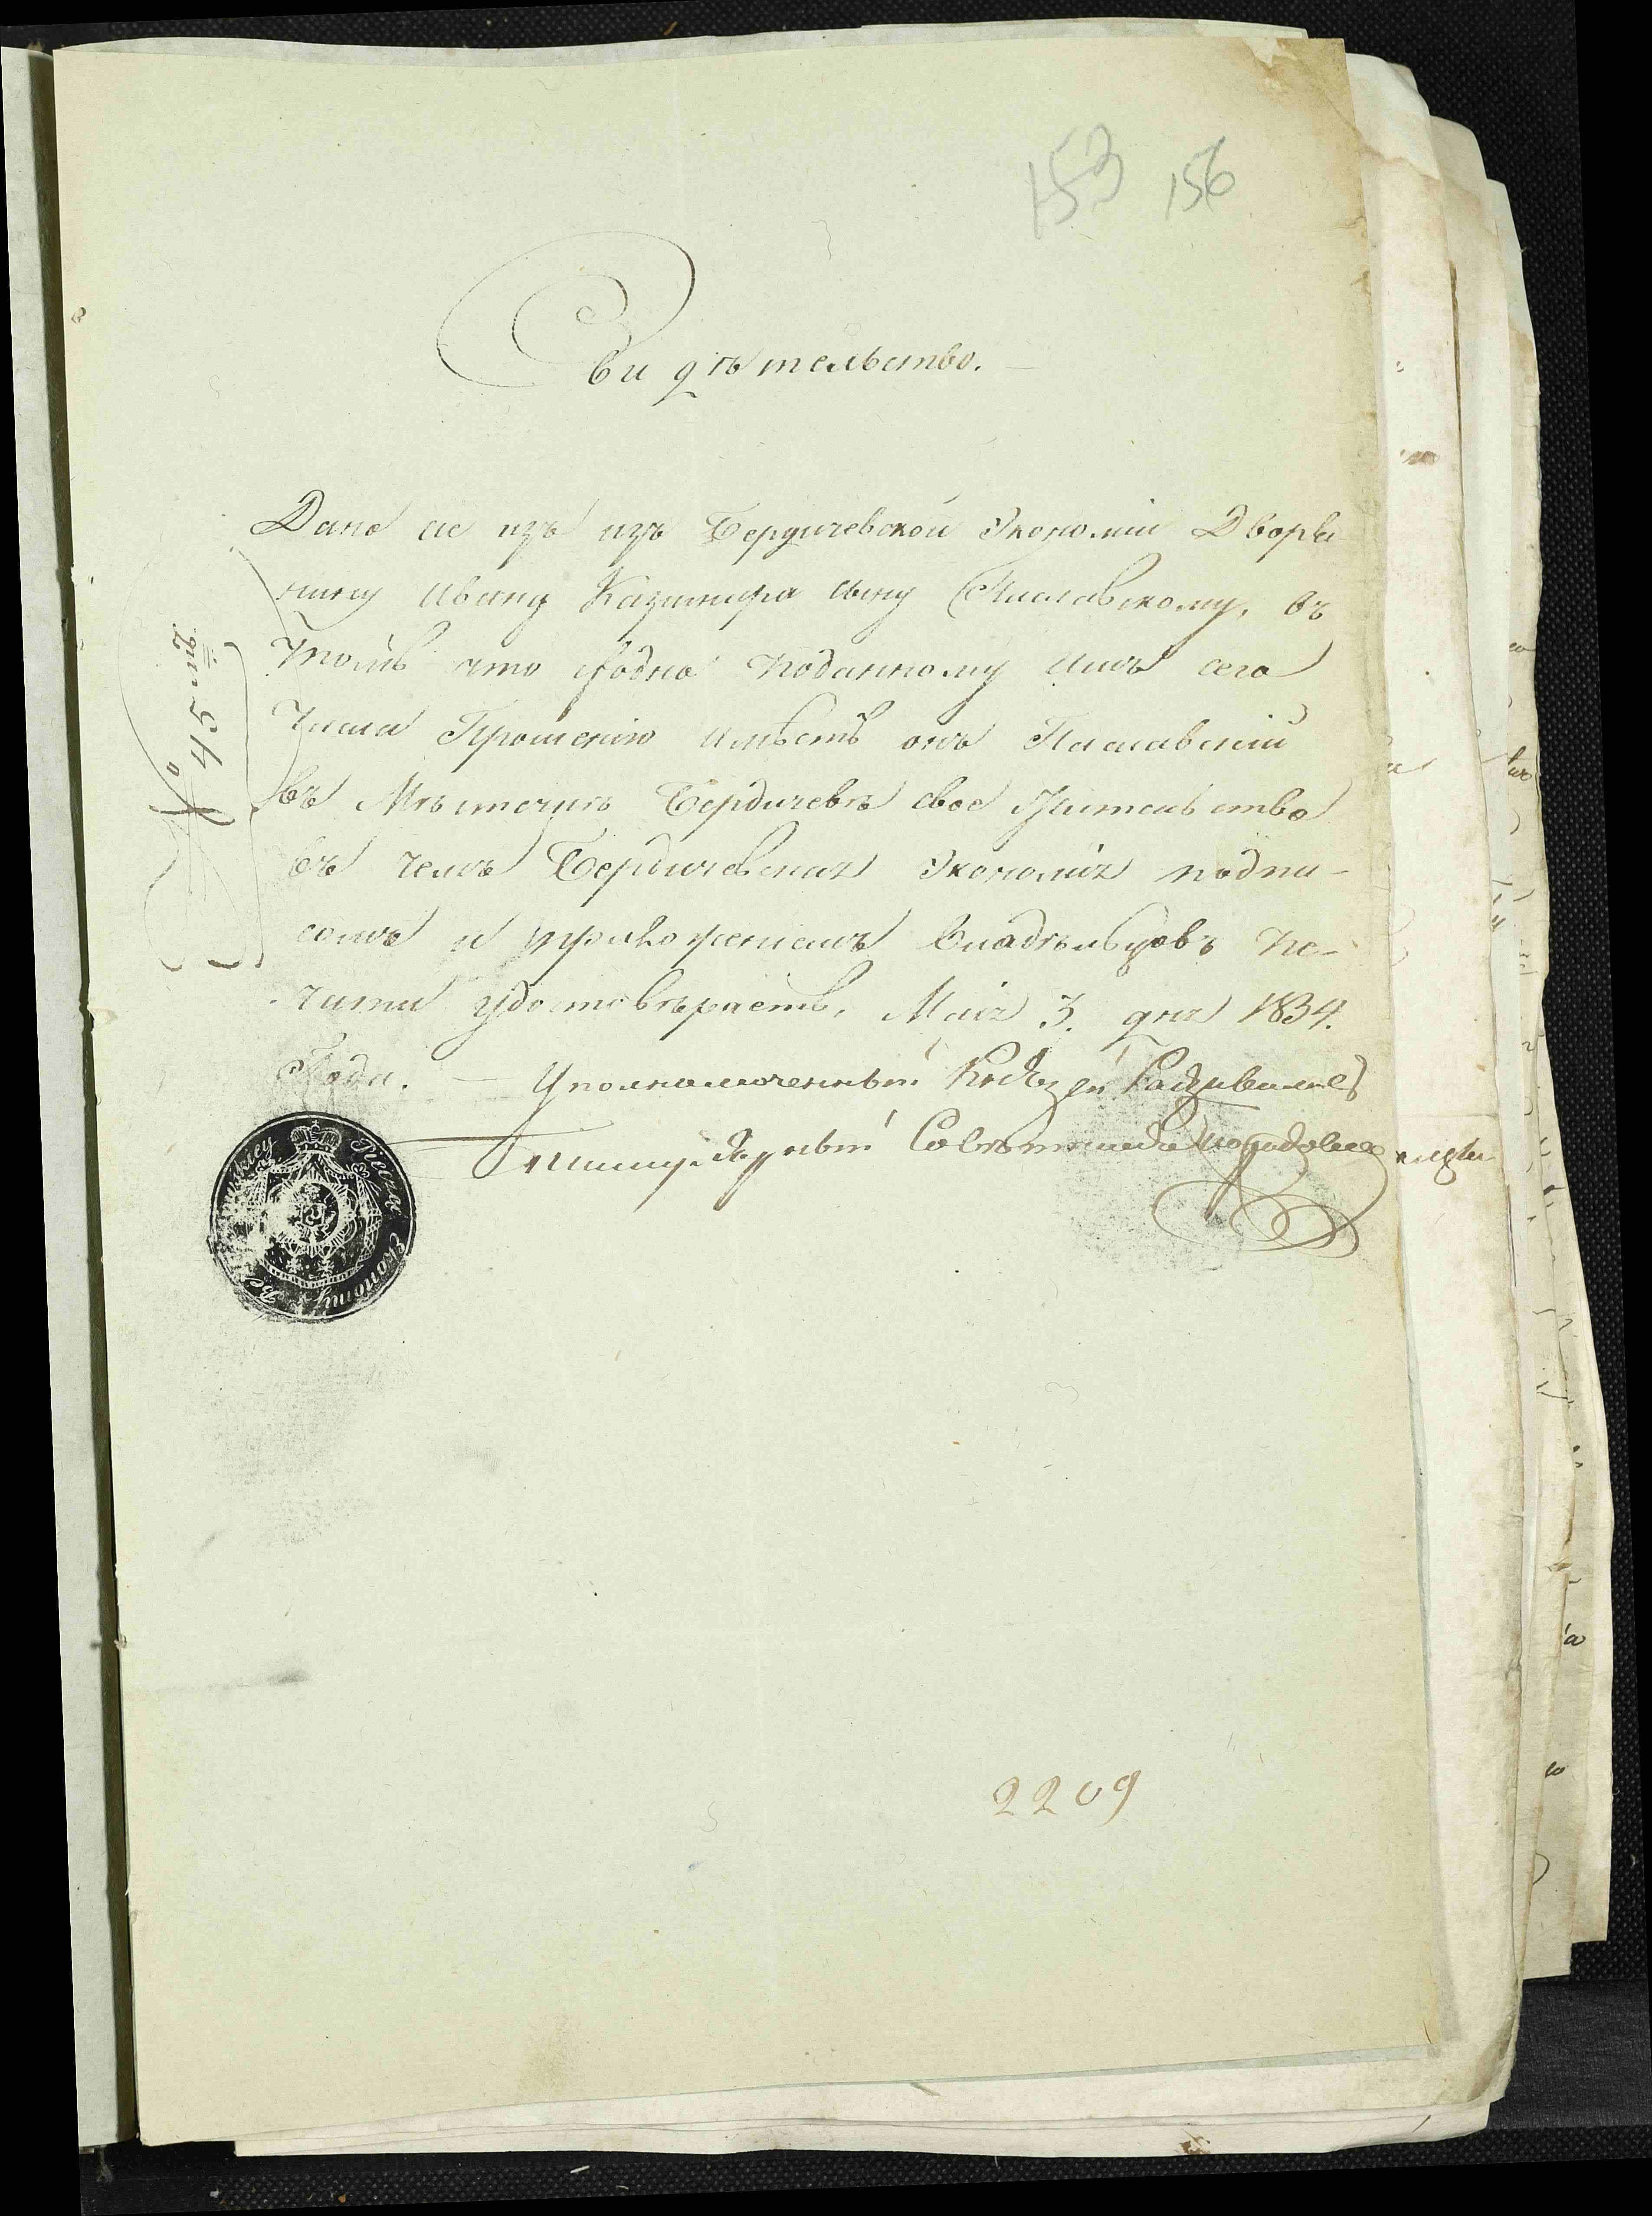 153 156
Свидѣтельство. —
Дано се изъ изъ Бердичевской Экономіи Дворя
нину Ивану Казимира сыну Паславскому, въ
томъ что сходно поданному имъ сего
числа Прошенію имѣетъ онъ Паславскій
въ Мѣстечкѣ Бердичевѣ свое Жительство
въ чемъ Бердичевская Экономія подпи-
сомъ и приложеніемъ Владѣльцовъ пе-
чати удостовѣряетъ, Маія 3. дня 1834.
Года. — Уполномоченный Князей Радзивиловъ
Титулярный Совѣтникъ
№ 454
Ekonomyi
2209